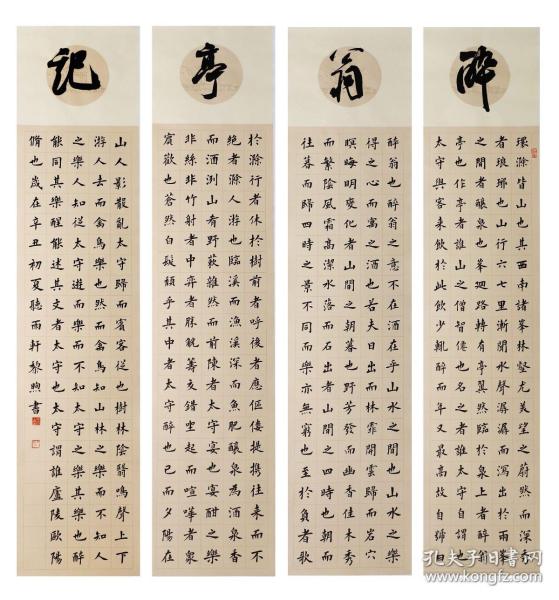 醉
環滁皆山也其西南諸峯林壑尤美望之蔚然而深秀
者琅琊也山行六七里漸聞水聲潺潺而瀉出於兩峯
之間者釀泉也峯迴路轉有亭翼然臨於泉上者醉翁
亭也作亭者誰山之僧智僊也名之者誰太守自謂也
太守與客來飲於此飲少輒醉而年又最高故自號曰
翁
醉翁也醉翁之意不在酒在乎山水之間也山水之樂
得之心而寓之酒也若夫日出而林霏開雲歸而岩穴
暝晦明變化者山間之朝暮也野芳發而幽香佳木秀
而繁陰風霜高潔水落而石出者山間之四時也朝而
往暮而歸四時之景不同而樂亦無窮也至於負者歌
亭
於滁行者休於樹前者呼後者應傴僂提攜往來而不
絕者滁人游也臨溪而漁溪深而魚肥釀泉為酒泉香
而酒洌山肴野蔌雜然而前陳者太守宴也宴酣之樂
非絲非竹射者中弈者勝觥籌交錯坐起而喧嘩者衆
賓歡也蒼然白髮頹乎其中者太守醉也已而夕陽在
記
山人影散亂太守歸而賓客從也樹林陰翳鳴聲上下
游人去而禽鳥樂也然而禽鳥知山林之樂而不知人
之樂人知從太守遊而樂而不知太守之樂其樂也醉
能同其樂醒能述其文者太守也太守謂誰廬陵歐陽
脩也歲在辛丑初夏聽雨軒黎煦書
孔夫子旧书网
www.kongfz.com